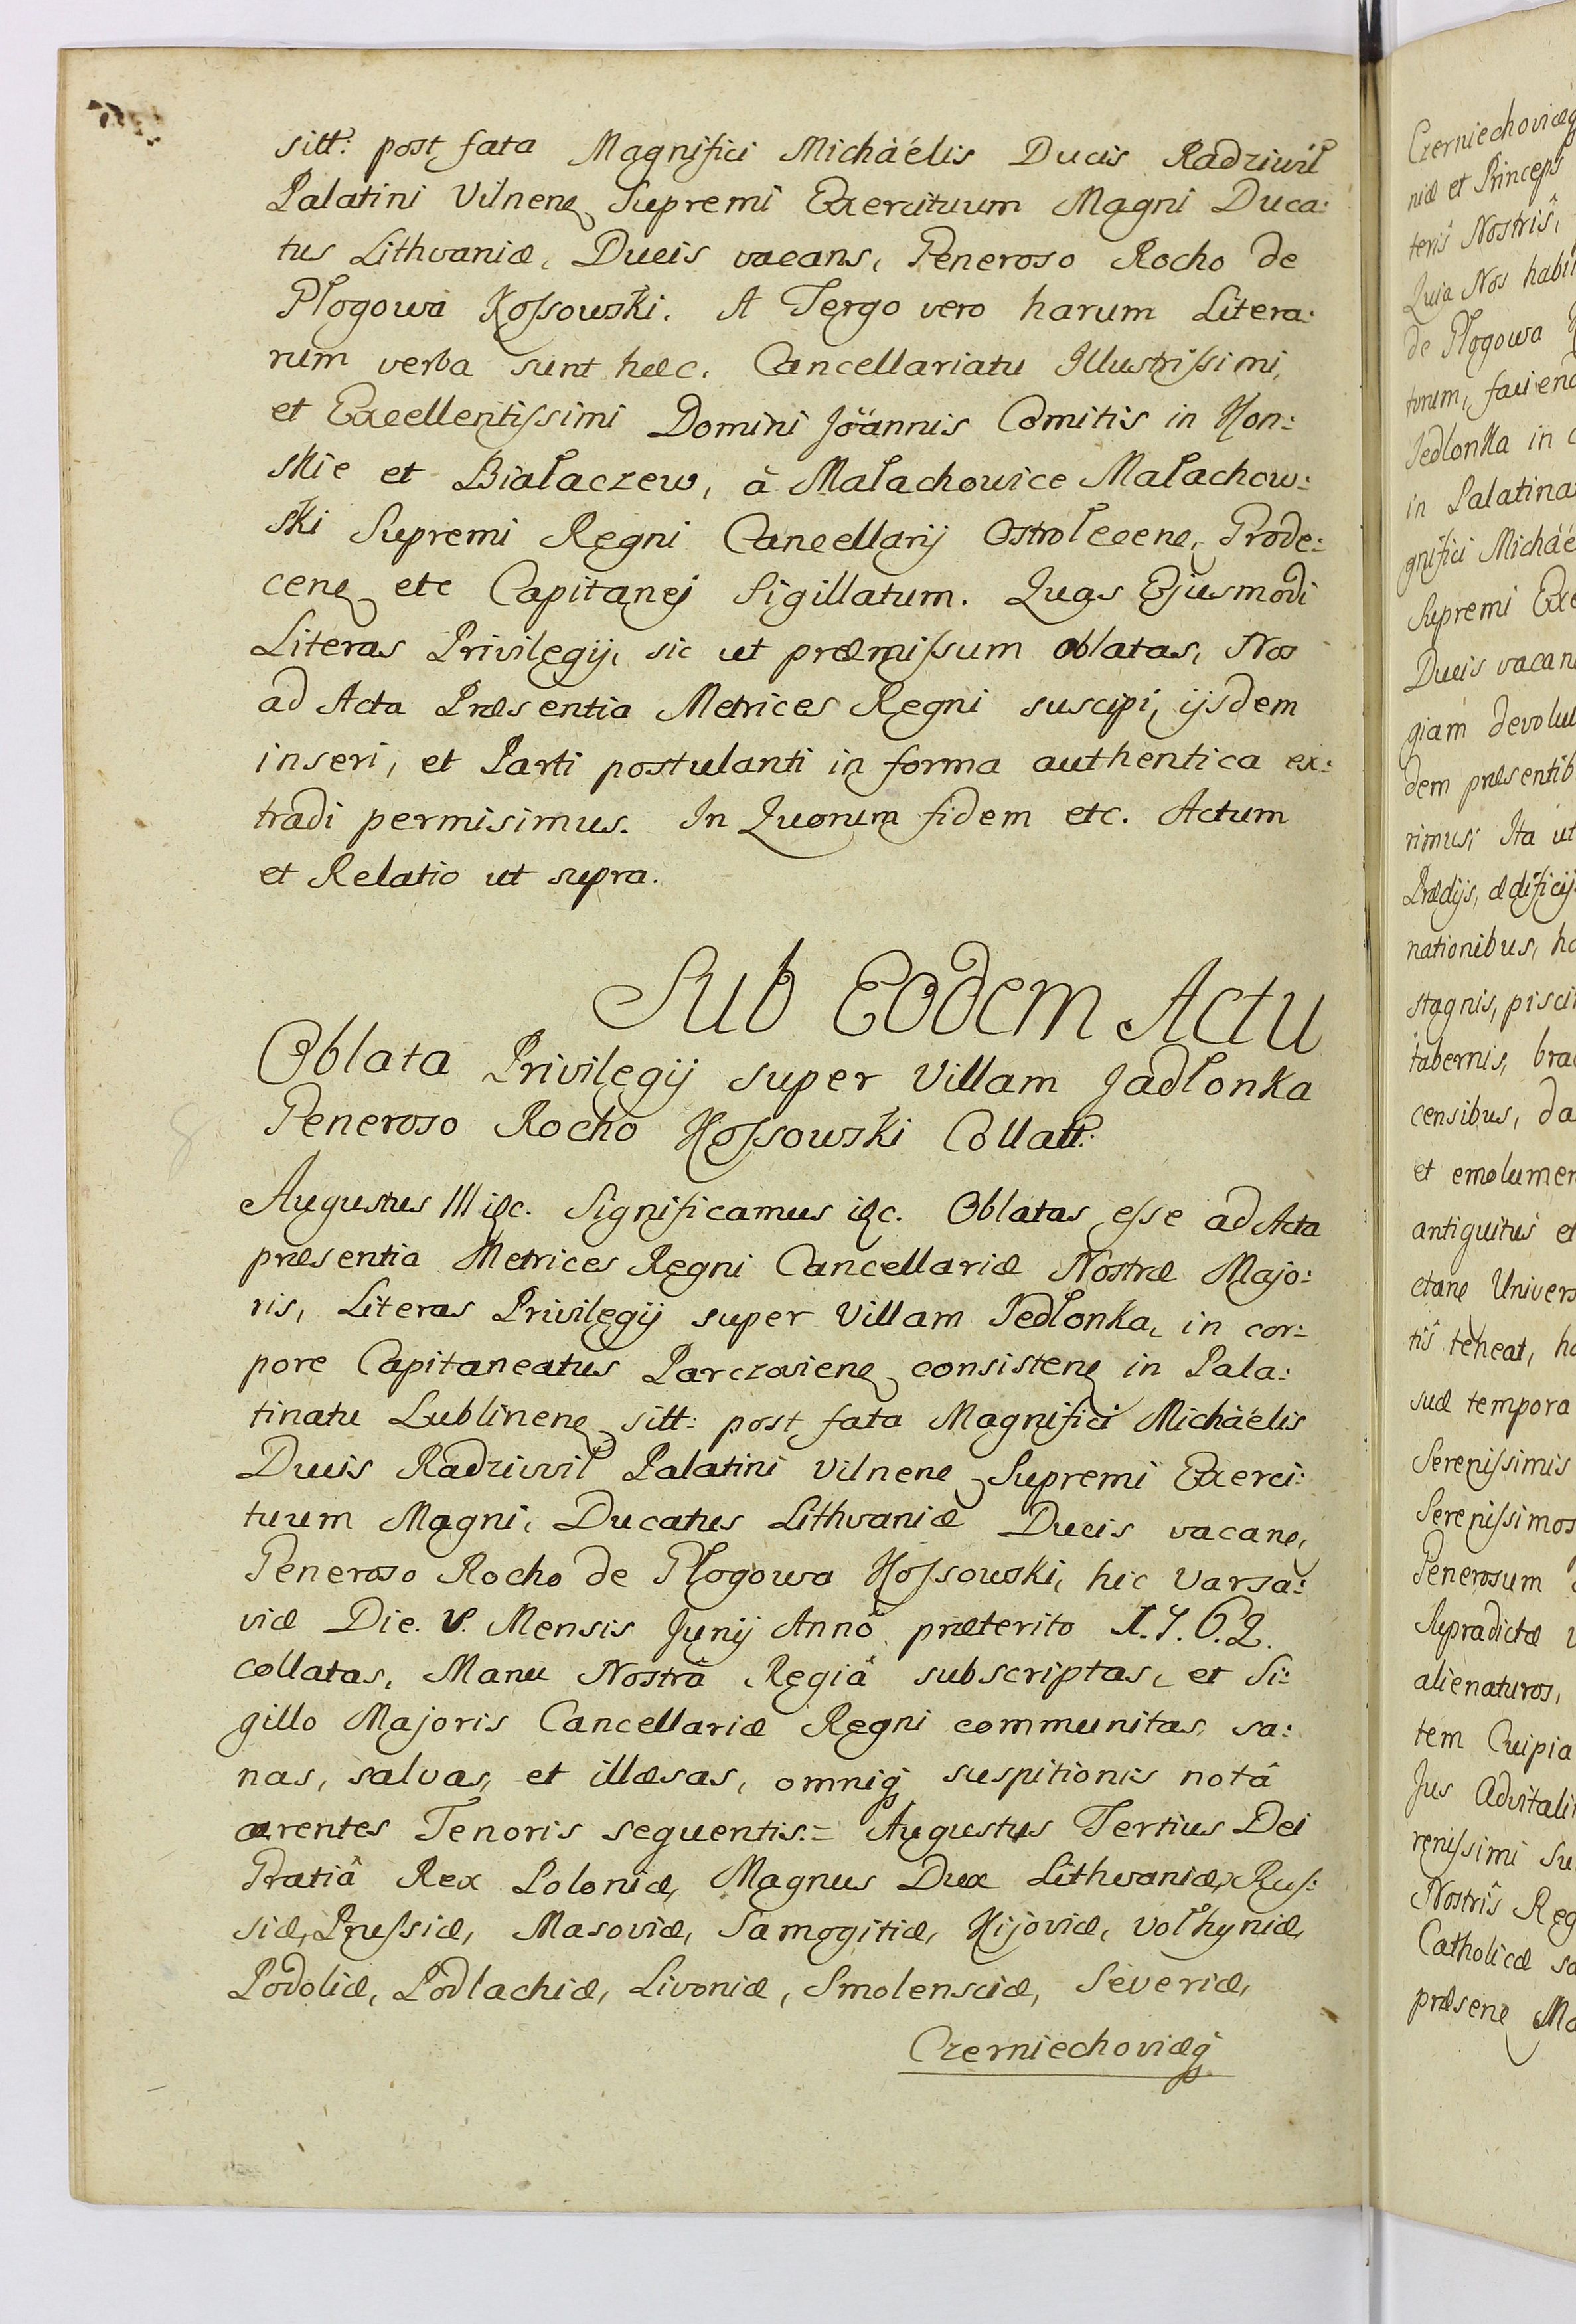 sitt: post fata Magnifici Michäélis Ducis Radziwił
Palatini Vilnens Supremi Exercituum Magni Duca:
tus Lithvaniæ, Ducis vacans, Generoso Rocho de
Głogowa Kossowski. A Tergo vero harum Litera:
rum verba sunt hæc. Cancellariatu Illustrissimi,
et Excellentissimi Domini Jöannis Comitis in Kon:
skie et Białaczew, à Małachowice Małachow:
ski Supremi Regni Cancellarij Ostrołecens, Grode:
cens etc Capitanej Sigillatum. Quas Ejusmodi
Literas Privilegij, sic ut præmissum oblatas, Nos
ad Acta Præsentia Metrices Regni suscipi, ijsdem
inseri, et Parti postulanti in forma authentica ex:
tradi permisimus. In Quorum fidem etc. Actum
et Relatio ut supra.
Sub Eodem Actu
Oblata Privilegij super Villam Jadłonka
Generoso Rocho Kossowski Collatt:
Augustus III etc. Significamus etc. Oblatas esse ad Acta
præsentia Metrices Regni Cancellariæ Nostræ Majo:
ris, Literas Privilegij super Villam Jedłonka, in cor:
pore Capitaneatus Parczoviens consistens in Pala:
tinatu Lublinens sitt: post fata Magnifici Michäélis
Ducis Radziwił Palatini Vilnens Supremi Exerci:
tuum Magni, Ducatus Lithvaniæ Ducis vacans,
Generoso Rocho de Głogowa Kossowski, hic Varsa:
viæ Die. V. Mensis Junij Annô præterito 1.7.6.2.
collatas, Manu Nostrâ Regiâ subscriptas, et Si:
gillo Majoris Cancellariæ Regni communitas, sa:
nas, salvas, et illæsas, omniq suspitionis notâ
carentes Tenoris sequentis.= Augustus Tertius Dei
Gratiâ Rex Poloniæ, Magnus Dux Lithvaniæ, Rus:
siæ, Prussiæ, Masoviæ, Samogitiæ, Kijoviæ, Vołhyniæ,
Podoliæ, Podlachiæ, Livoniæ, Smolensciæ, Severiæ,
Czerniechoviæq
Czerniechoviæq
niæ et Princeps
teris Nostris,
Quia Nos habi
de Głogowa
torum, faciend
Jedlonka in
in Palatina
gnifici Michäé
Supremi Exe
Ducis vacan
giam devolu
dem præsentib
rimus; Ita ut
Prædijs, ædificij
nationibus, ho
stagnis, pisci
tabernis, bra
censibus, da
et emolumen
antiquitus et
etans Univers
tîs teneat, ha
suæ tempora
Serenissimis
Serenissimos
Generosum
Supradictæ v
alienaturos,
tem Cuipia
Jus Advitali
renissimi Su
Nostris Reg
Catholicæ sa
præsens Ma